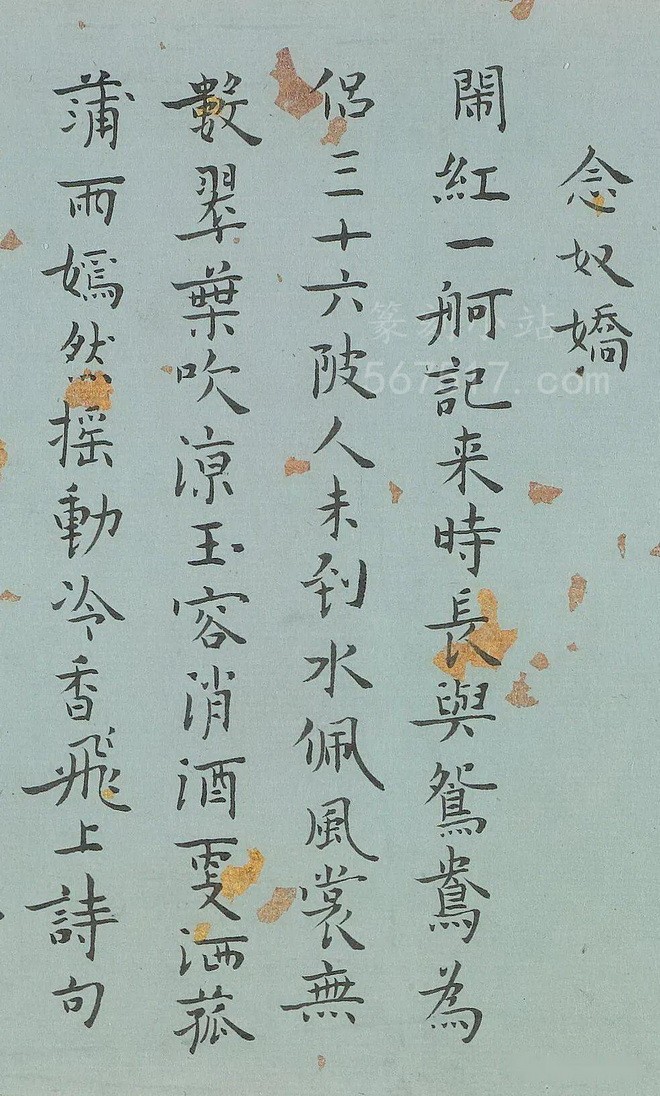 念奴嬌
鬧紅一舸記来時長與鴛鴦為
侶三十六陂人未到水佩風裳無
數翠葉吹涼玉容消酒更洒菰
蒲雨嫣然摇動冷香飛上詩句